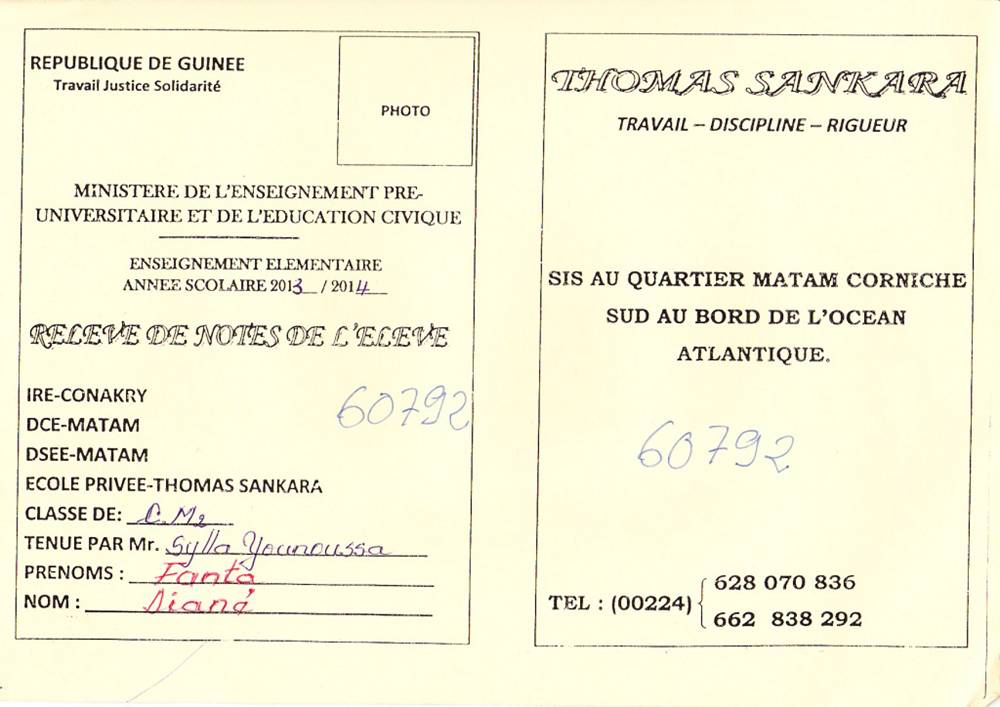 REPUBLIQUE DE GUINEE
Travail Justice Solidarité
PHOTO
MINISTERE DE L'ENSEIGNEMENT PRE-
UNIVERSITAIRE ET DE L'EDUCATION CIVIQUE
ENSEIGNEMENT ELEMENTAIRE
ANNEE SCOLAIRE 2013 / 2014
RELEVE DE NOTES DE L'ELEVE
IRE-CONAKRY
60792
DCE-MATAM
DSEE-MATAM
ECOLE PRIVEE-THOMAS SANKARA
CLASSE DE: C.M2
TENUE PAR Mr. Sylla Younoussa
PRENOMS : Fanta
NOM : Diané
THOMAS SANKARA
TRAVAIL – DISCIPLINE – RIGUEUR
SIS AU QUARTIER MATAM CORNICHE
SUD AU BORD DE L'OCEAN
ATLANTIQUE.
60792
TEL : (00224) 628 070 836
662 838 292